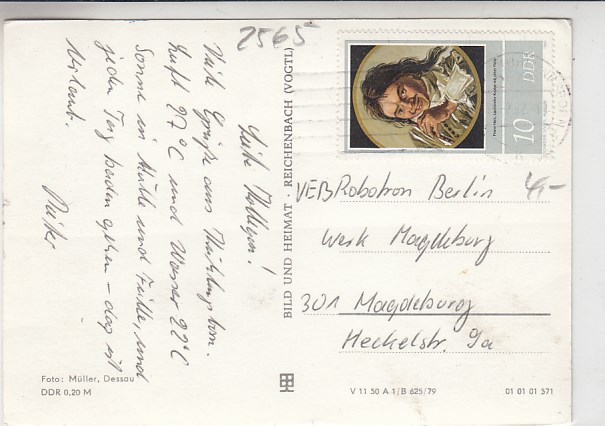 2565
Liebe Kollegen!
Viele Grüße aus
Luft 27°C und Wasser 22°C
Sonne in Hülle und Fülle, und
jeden Tag baden gehen – das ist
Urlaub.
BILD UND HEIMAT · REICHENBACH (VOGTL)
DDR
10
VEB Robotron Berlin
4,-
Werk Magdeburg
301 Magdeburg
9a
Foto: Müller, Dessau
DDR 0,20 M
V 11 50 A 1/B 625/79
01 01 01 571